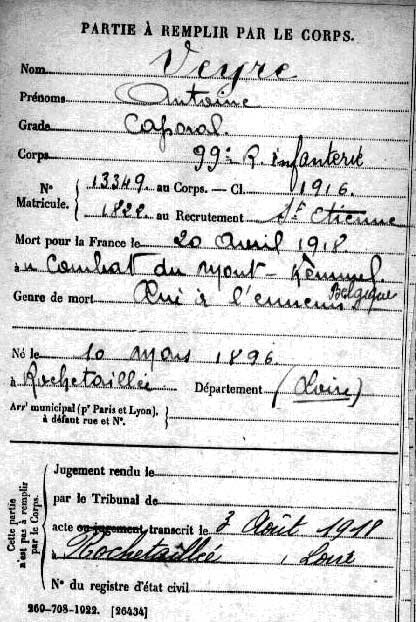 PARTIE À REMPLIR PAR LE CORPS.
Nom Veyre
Prénoms Antoine
Grade Caporal.
Corps 99e R. infanterie
N° Matricule. { 13349. au Corps. — Cl. 1916.
1822. au Recrutement St Etienne
Mort pour la France le 20 Avril 1918
à u Combat du Mont-Kemmel.
Belgique
Genre de mort Tué à l'ennemi
Né le 10 Mars 1896.
à Rochetaillée Département (Loire)
Arrt municipal (pr Paris et Lyon), à défaut rue et N°. }
Cette partie n'est pas à remplir par le Corps.
Jugement rendu le
par le Tribunal de
acte ou jugement transcrit le 3 Août 1918
à Rochetaillée, Loire
N° du registre d'état civil
260-708-1922. [26434]